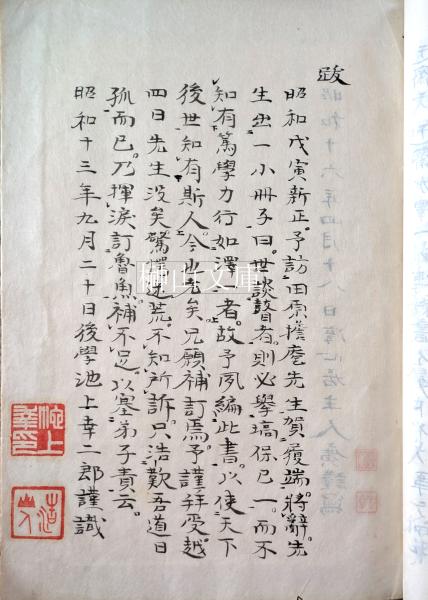 跋
昭和戊寅新正。予訪田原擔庵先生賀履端。將辭。先
生出一小冊子曰。世談瞽者。則必擧塙保己一。而不
知有篤學力行如澤 者。故予夙編此書。以使天下
後世知有斯人。今 矣。兄願補訂焉。予謹拜受越
四日先生沒矣。驚 。不知所訴。只浩歎吾道日
孤而已。乃揮淚訂魯魚補不足。以塞弟子責云。
昭和十三年九月二十日後學池上幸二郎謹識
池上
幸印